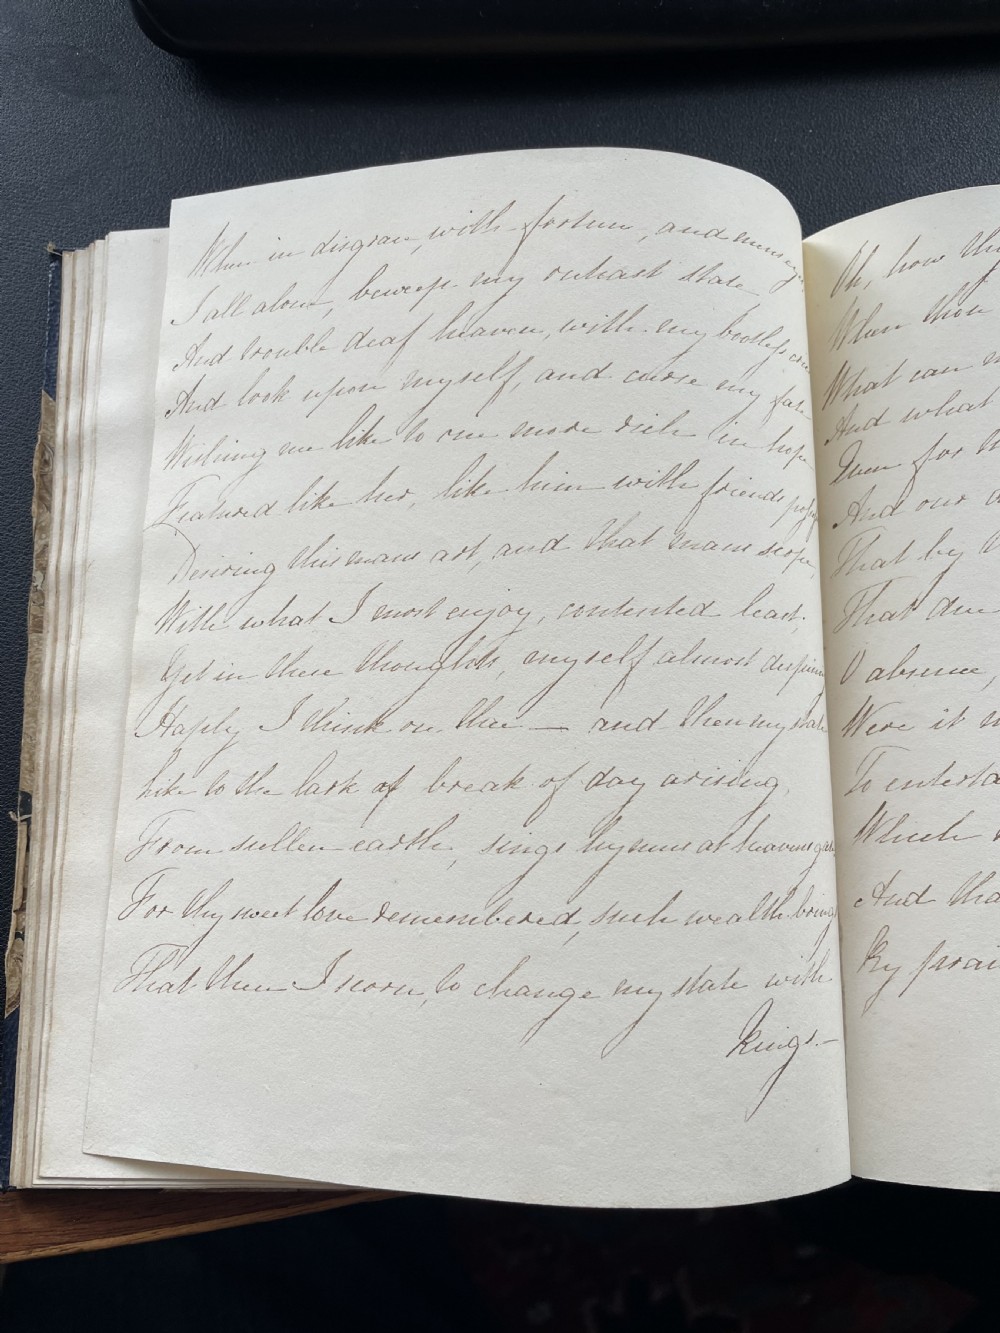 When in disgrace, with fortune, and mens eyes
I all alone, beweep my outcast state,
And trouble deaf heaven, with my bootless cries
And look upon myself, and curse my fate
Wishing me like to one more rich in hope
Featured like her, like him with friends possest
Desiring this mans art, and that mans scope,
With what I most enjoy, contented least,
Yet in these thoughts, myself almost despising
Haply I think on thee — and then my state
Like to the lark at break of day arising
From sullen earth, sings hymns at heavens gate
For thy sweet love remembered, such wealth brings
That then I scorn, to change my state with
Kings.—
Oh, how thy
When thou
What can
And what
Even for
And our
That by
That due
O absence,
Were it
To enterta
Which
And tha
By prai